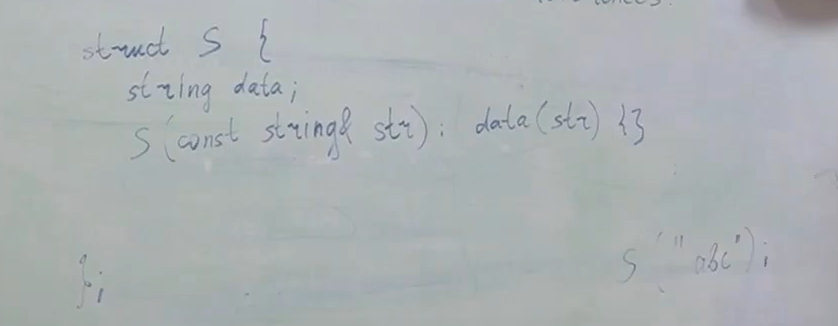 struct S {
string data;
S(const string& str): data(str) {}
}; S("abc");